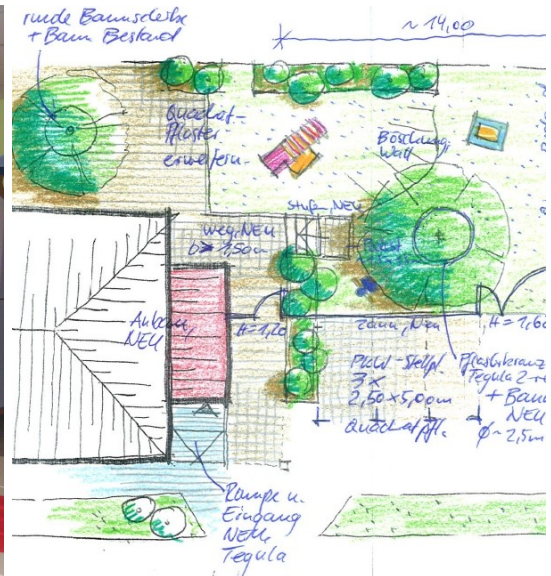 runde Baumscheibe
+ Baum Bestand
~ 14,00
Quadrat-
Pflaster
erweitern.
Böschung
Wall
Stufe, NEU
Weg, NEU
b= 1,50m
Anbau,
NEU
H=1,20
Zaun, Neu
H=1,60
PKW-Stellpl.
3x
2,50x5,00m
Quadratpfl.
Pflasterkranz
Tegula 2-r
+ Baum
NEU
Ø~2,5m
Rampe u.
Eingang
NEU,
Tegula